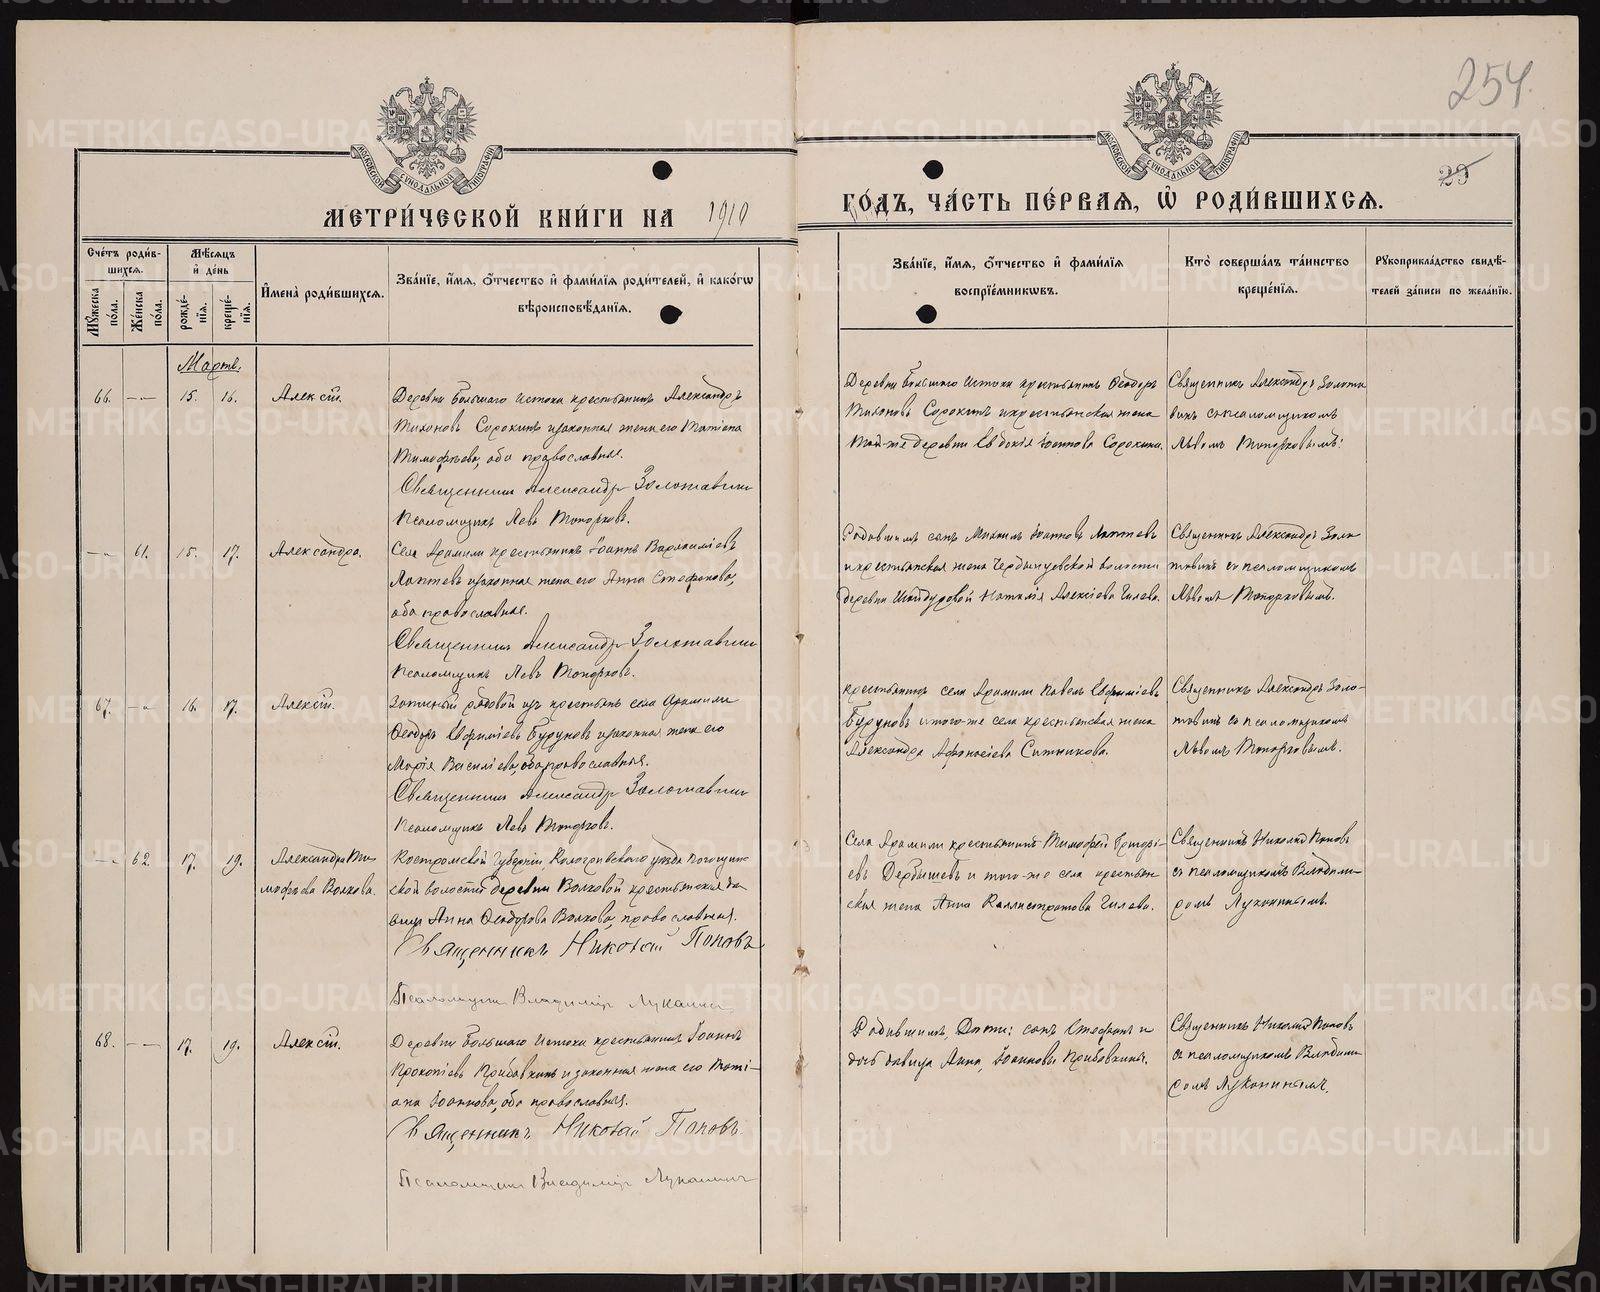 254.
25
МОСКОВСКОЙ СѴНОДАЛЬНОЙ ТИПОГРАФІИ
МОСКОВСКОЙ СѴНОДАЛЬНОЙ ТИПОГРАФІИ
МЕТРИ́ЧЕСКОЙ КНИ́ГИ НА 1910
ГО́ДЪ, ЧА́СТЬ ПЕ́РВАѦ, Ѡ҆ РОДИ́ВШИХСѦ.
Сче́тъ роди́в-
шихсѧ.
Мѣ́сѧцъ
и҆ де́нь
Мꙋ́жеска по́ла.
Же́нска по́ла.
рожде́-
нїѧ.
креще́-
нїѧ.
И҆мена̀ роди́вшихсѧ.
Зва́нїе, и҆́мѧ, ѻ҆́тчество и҆ фами́лїѧ роди́телей, и҆ како́гѡ
вѣроисповѣ́данїѧ.
Зва́нїе, и҆́мѧ, ѻ҆́тчество и҆ фами́лїѧ
воспрїе́мникѡвъ.
Кто̀ соверша́лъ та́инство
креще́нїѧ.
Рꙋкоприкла́дство свидѣ́-
телей за́писи по жела́нїю.
Мартъ.
66. — — 15. 16. Алексій.
Деревни Большаго Истока крестьянинъ Александръ
Тихоновъ Сорокинъ и законная жена его Татіана
Тимофѣева, оба православные.
Священникъ Александръ Золотавинъ
Псаломщикъ Левъ Топорковъ.
Деревни Большаго Истока крестьянинъ Ѳеодоръ
Тихоновъ Сорокинъ и крестьянская жена
той-же деревни Евдокія Іоаннова Сорокина.
Священникъ Александръ Золота
винъ съ псаломщикомъ
Львомъ Топорковымъ.
— — 61. 15. 17. Александра.
Села Арамили крестьянинъ Іоаннъ Варѳоломіевъ
Лаптевъ и законная жена его Анна Стефанова,
оба православные.
Священникъ Александръ Золотавинъ
Псаломщикъ Левъ Топорковъ.
Родившимъ сынъ Михаилъ Іоанновъ Лаптевъ
и крестьянская жена волости
деревни Наталія Алексіева Гилева.
Священникъ Александръ Золо
тавинъ съ псаломщикомъ
Львомъ Топорковымъ.
67. — — 16. 17. Алексій.
Запасный рядовой изъ крестьянъ села Арамили
Ѳеодоръ Евфиміевъ Буруновъ и законная жена его
Марія Василіева, оба православные.
Священникъ Александръ Золотавинъ
Псаломщикъ Левъ Топорковъ.
Крестьянинъ села Арамили Павелъ Евфиміевъ
Буруновъ и того-же села крестьянская жена
Александра Аѳанасіева Ситникова.
Священникъ Александръ Золо-
тавинъ съ псаломщикомъ
Львомъ Топорковымъ.
— — 62. 17. 19. Александра Ти-
мофѣева Волкова.
Костромской губерніи Кологривскаго уѣзда
ской волости деревни Волковой крестьянская дѣ
вица Анна Ѳеодорова Волкова, православная.
Священникъ Николай Поповъ
Псаломщикъ Владиміръ Луканинъ
Села Арамили крестьянинъ Тимофей Григорі-
евъ Дербышевъ и того-же села крестьян-
ская жена Анна Каллистратова Гилева.
Священникъ Николай Поповъ
съ псаломщикомъ Владими-
ромъ Луканинымъ.
68. — — 17. 19. Алексій.
Деревни Большаго Истока крестьянинъ Іоаннъ
Прокопіевъ Прибавкинъ и законная жена его Таті-
ана Іоаннова, оба православные.
Священникъ Николай Поповъ
Псаломщикъ Владиміръ Луканинъ
Родившимъ дѣти: сынъ Стефанъ и
дочь дѣвица Анна, Іоанновы Прибавкины.
Священникъ Николай Поповъ
съ псаломщикомъ Владими
ромъ Луканинымъ.
METRIKI.GASO-URAL.RU